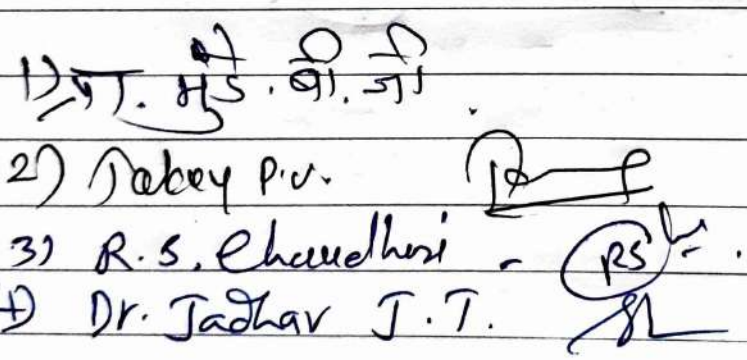 1) प्रा. मुंडे. बी. जी
2) Takey P.V.
3) R.S. Chaudhari - RS
4) Dr. Jadhav J.T.